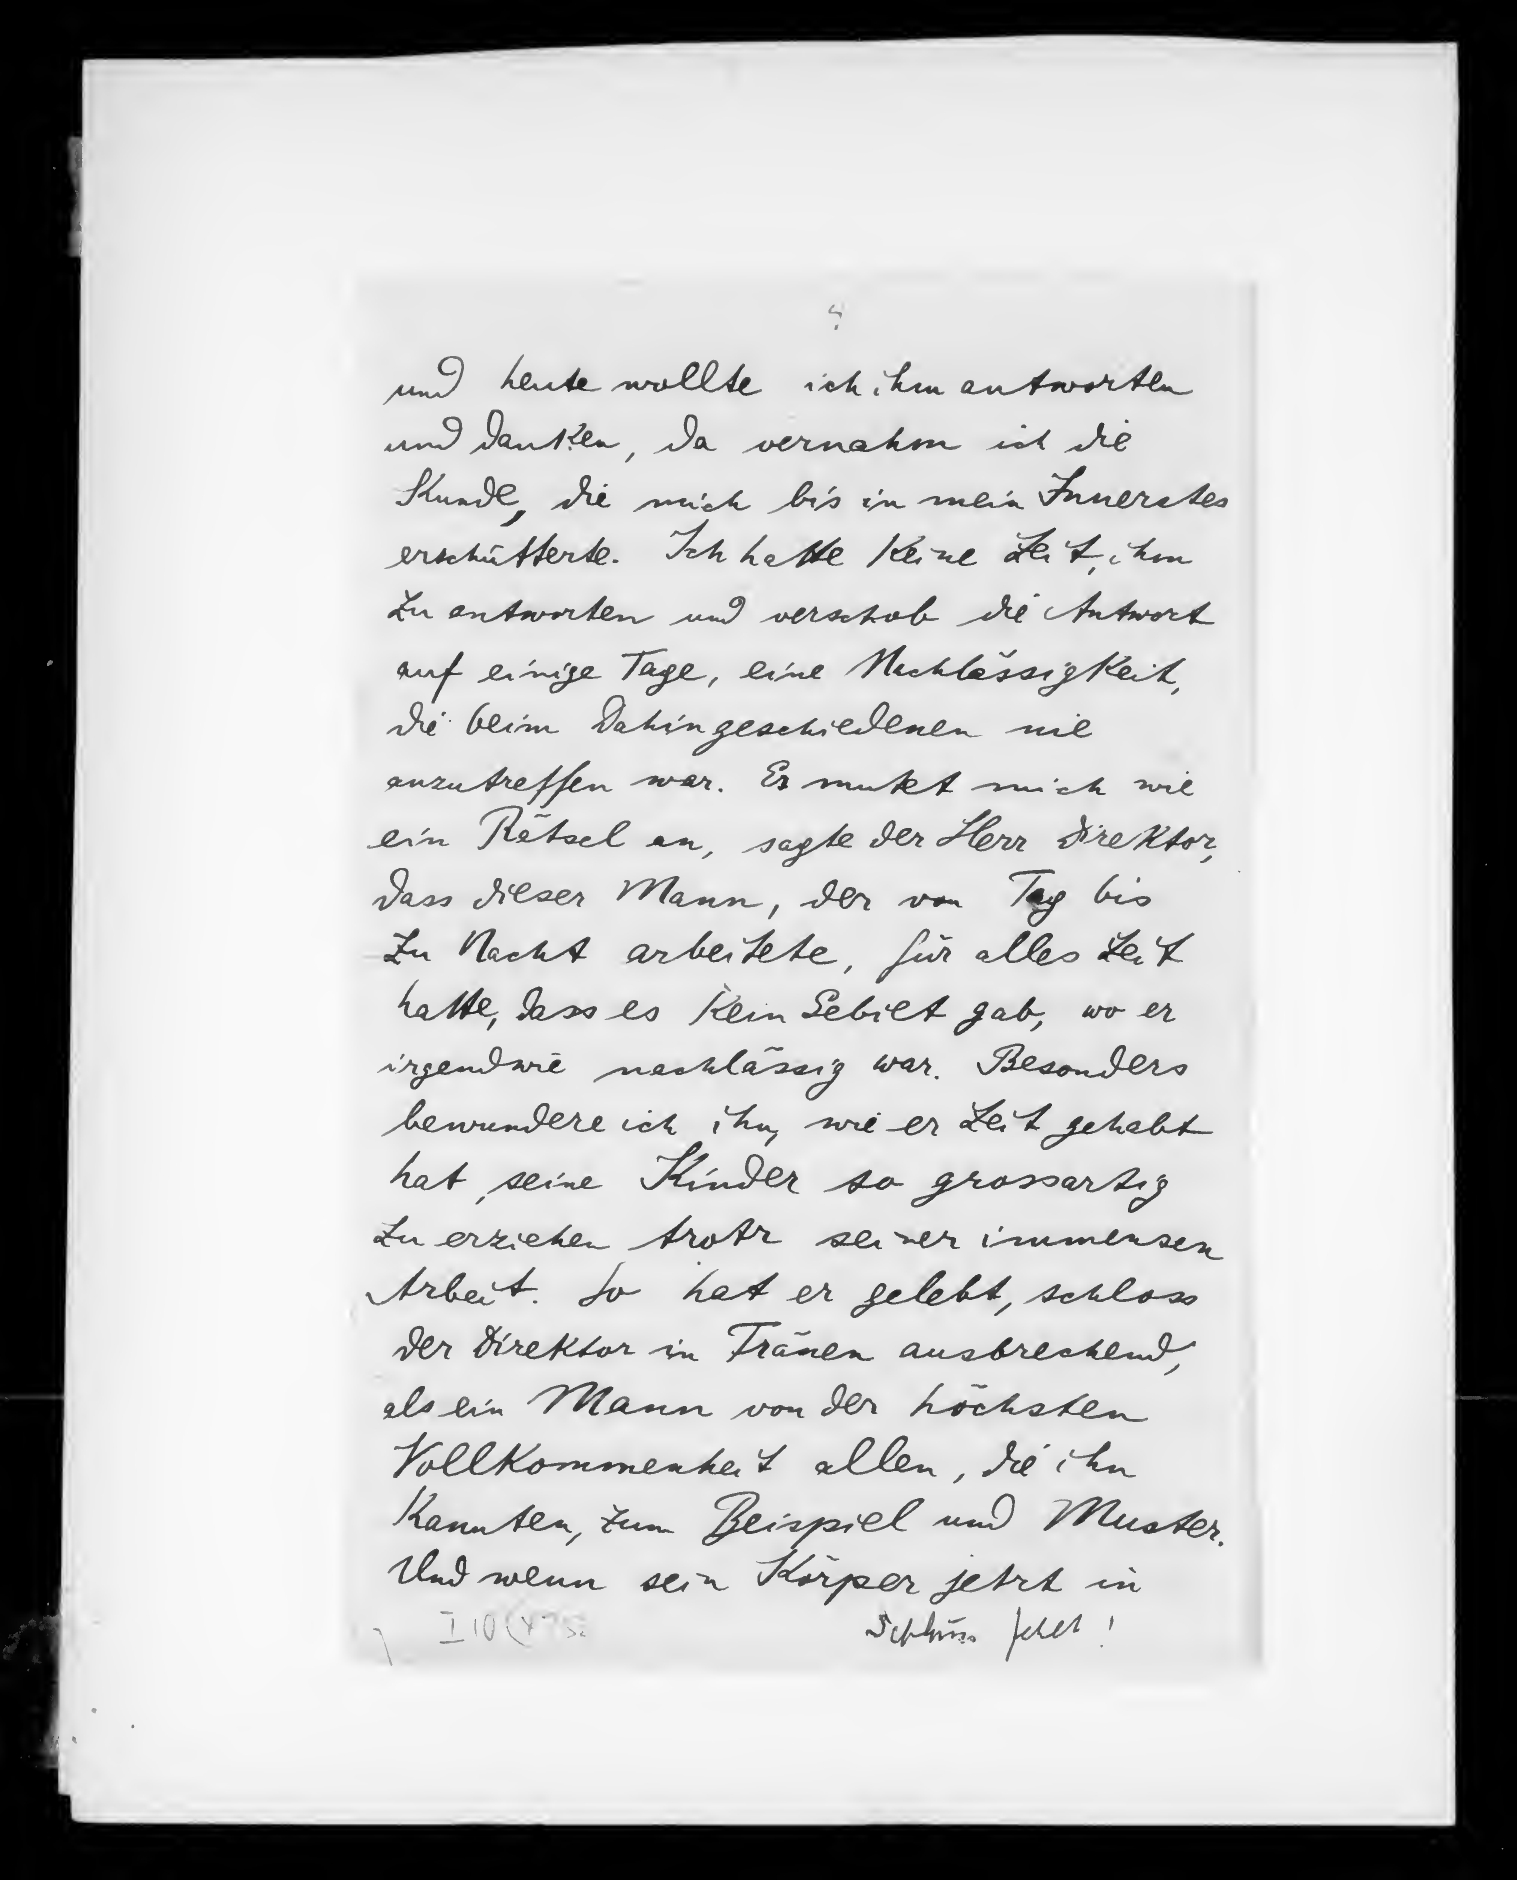 und heute wollte ich ihm antworten
und danken, da vernahm ich die
Kunde, die mich bis in mein Innerstes
erschütterte. Ich hatte keine Zeit, ihm
zu antworten und verschob die Antwort
auf einige Tage, eine Nachlässigkeit,
die beim Dahingeschiedenen nie
anzutreffen war. Es mutet mich wie
ein Rätsel an, sagte der Herr Direktor,
dass dieser Mann, der von Tag bis
zu Nacht arbeitete, für alles Zeit
hatte, dass es kein Gebiet gab, wo er
irgendwie nachlässig war. Besonders
bewundere ich ihn, wie er Zeit gehabt
hat, seine Kinder so grossartig
zu erziehen trotz seiner immensen
Arbeit. So hat er gelebt, schloss
der Direktor in Tränen ausbrechend,
als ein Mann von der höchsten
Vollkommenheit allen, die ihn
kannten, zum Beispiel und Muster.
Und wenn sein Körper jetzt in
Schluss fehlt!